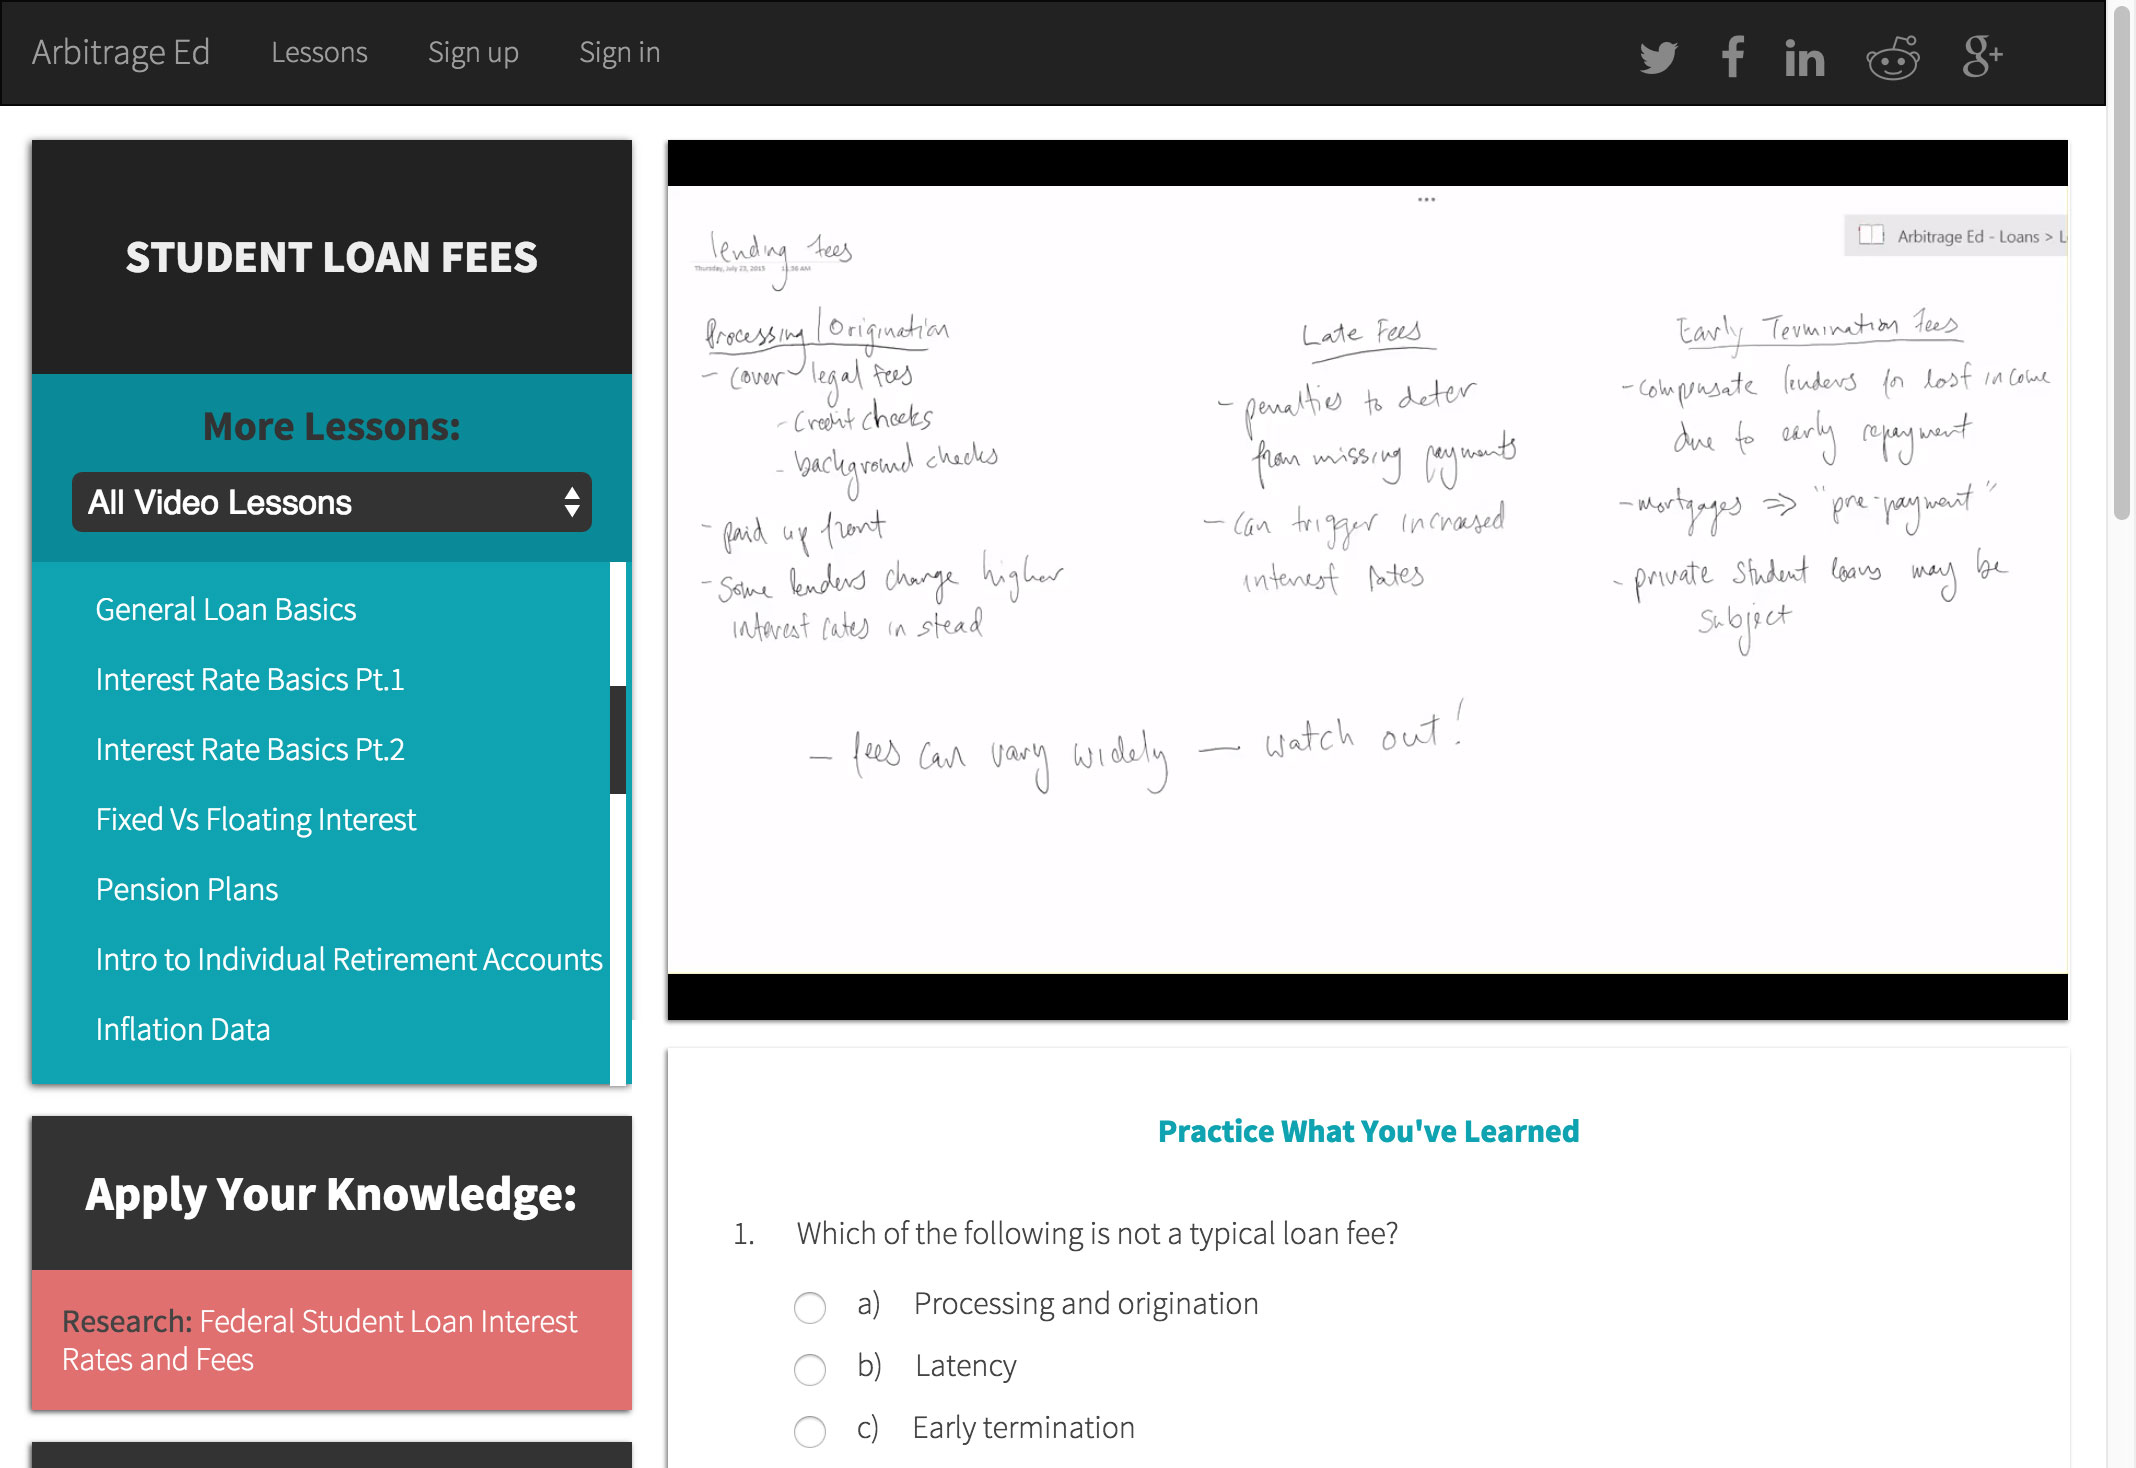 Arbitrage Ed Lessons Sign up Sign in
STUDENT LOAN FEES
More Lessons:
All Video Lessons
General Loan Basics
Interest Rate Basics Pt.1
Interest Rate Basics Pt.2
Fixed Vs Floating Interest
Pension Plans
Intro to Individual Retirement Accounts
Inflation Data
Apply Your Knowledge:
Research: Federal Student Loan Interest
Rates and Fees
Arbitrage Ed - Loans > L
lending fees
Thursday, July 23, 2015 11:38 AM
Processing / Origination
- cover legal fees
- Credit checks
- background checks
- paid up front
- Some lenders change higher
interest rates in stead
Late Fees
- penalties to deter
from missing payments
- can trigger increased
interest rates
Early Termination Fees
- compensate lenders for lost income
due to early repayment
- mortgages => "pre-payment"
- private student loans may be
subject
- fees can vary widely — watch out!
Practice What You've Learned
1. Which of the following is not a typical loan fee?
a) Processing and origination
b) Latency
c) Early termination